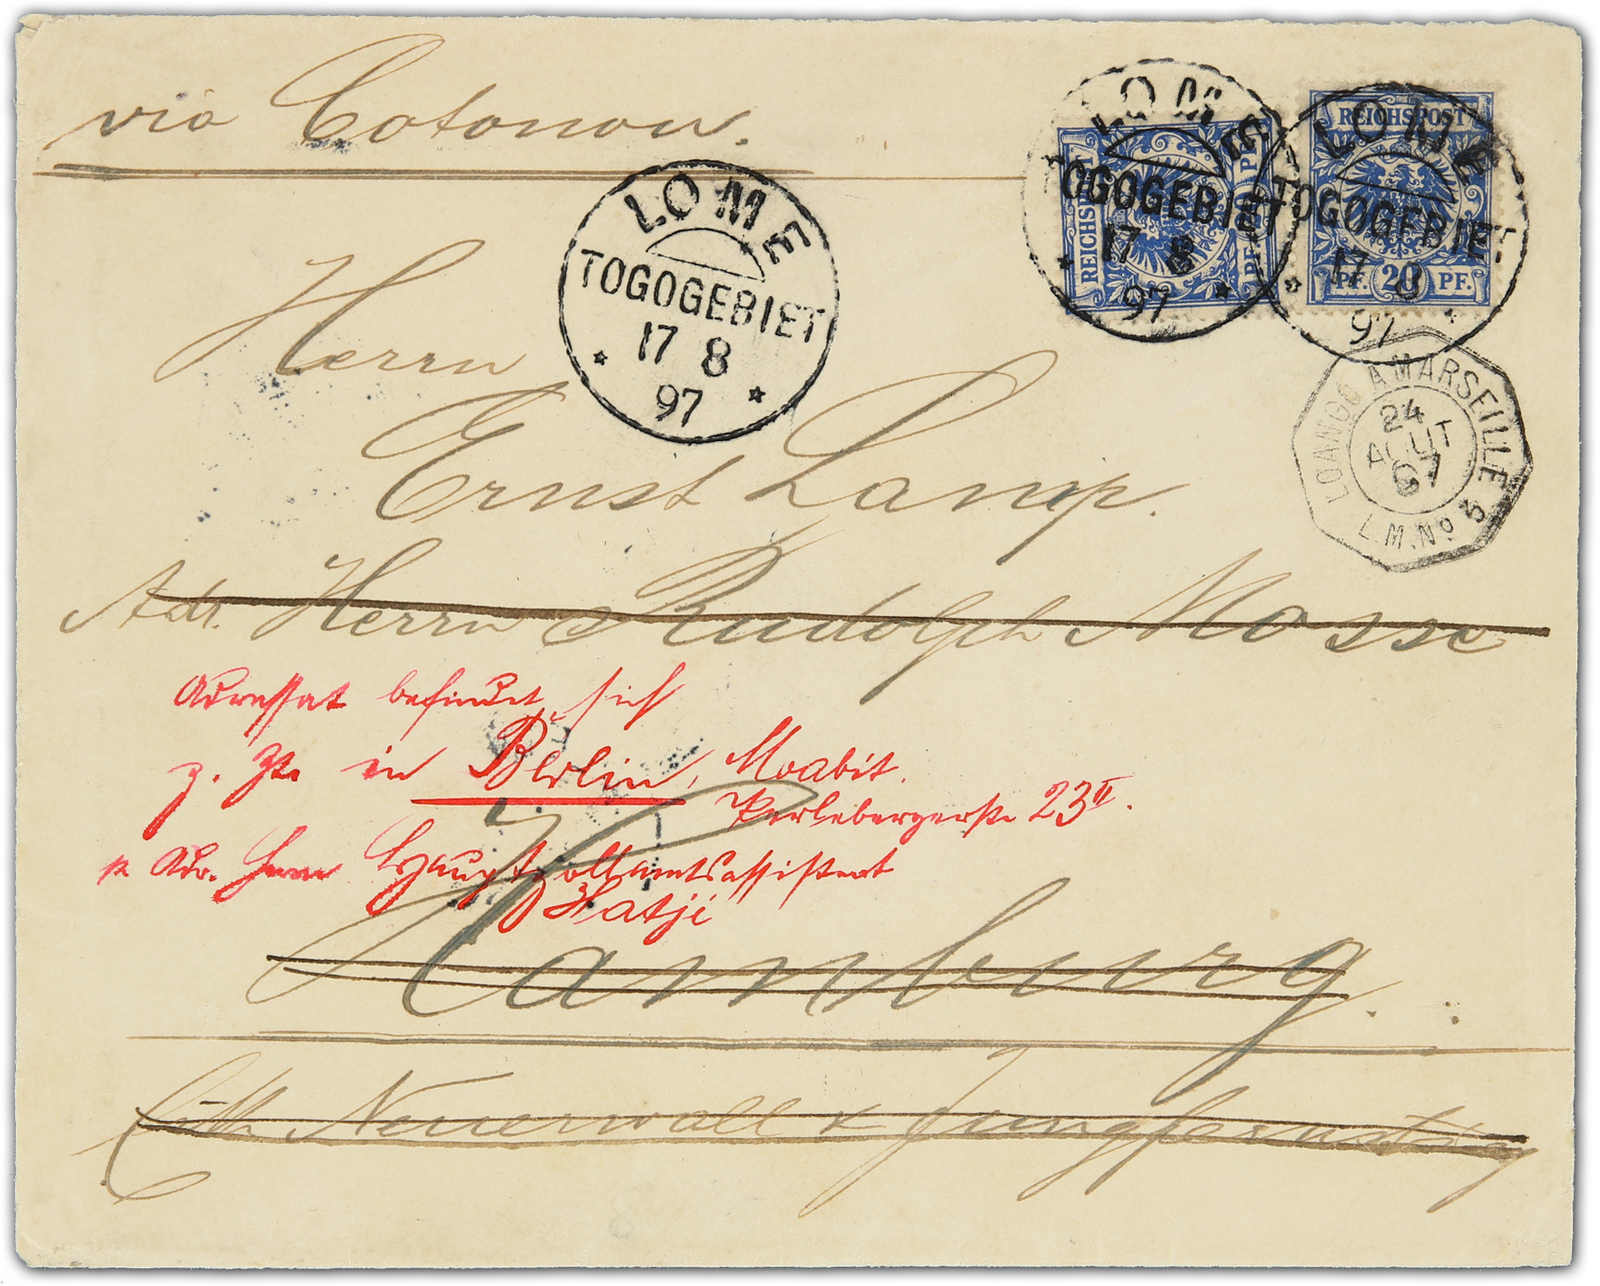 via Cotonou.
LOME
TOGOGEBIET
17 8
97
LOME
TOGOGEBIET
17 8
97
LOME
TOGOGEBIET
17 8
97
REICHSPOST
PF.
REICHSPOST
PF. 20 PF.
LOANGO A MARSEILLE
24
AOUT
97
L.M. No 3
Herrn
Ernst Lamp.
Adr. Herrn Rudolph Mosse
Adressat befindet sich
z. Zt. in Berlin, Moabit.
Perlebergerstr 23 II.
p. Adr. Herrn Hauptzollamtsassistent
Hatje
Hamburg.
Ecke Neuerwall & Jungfernstieg